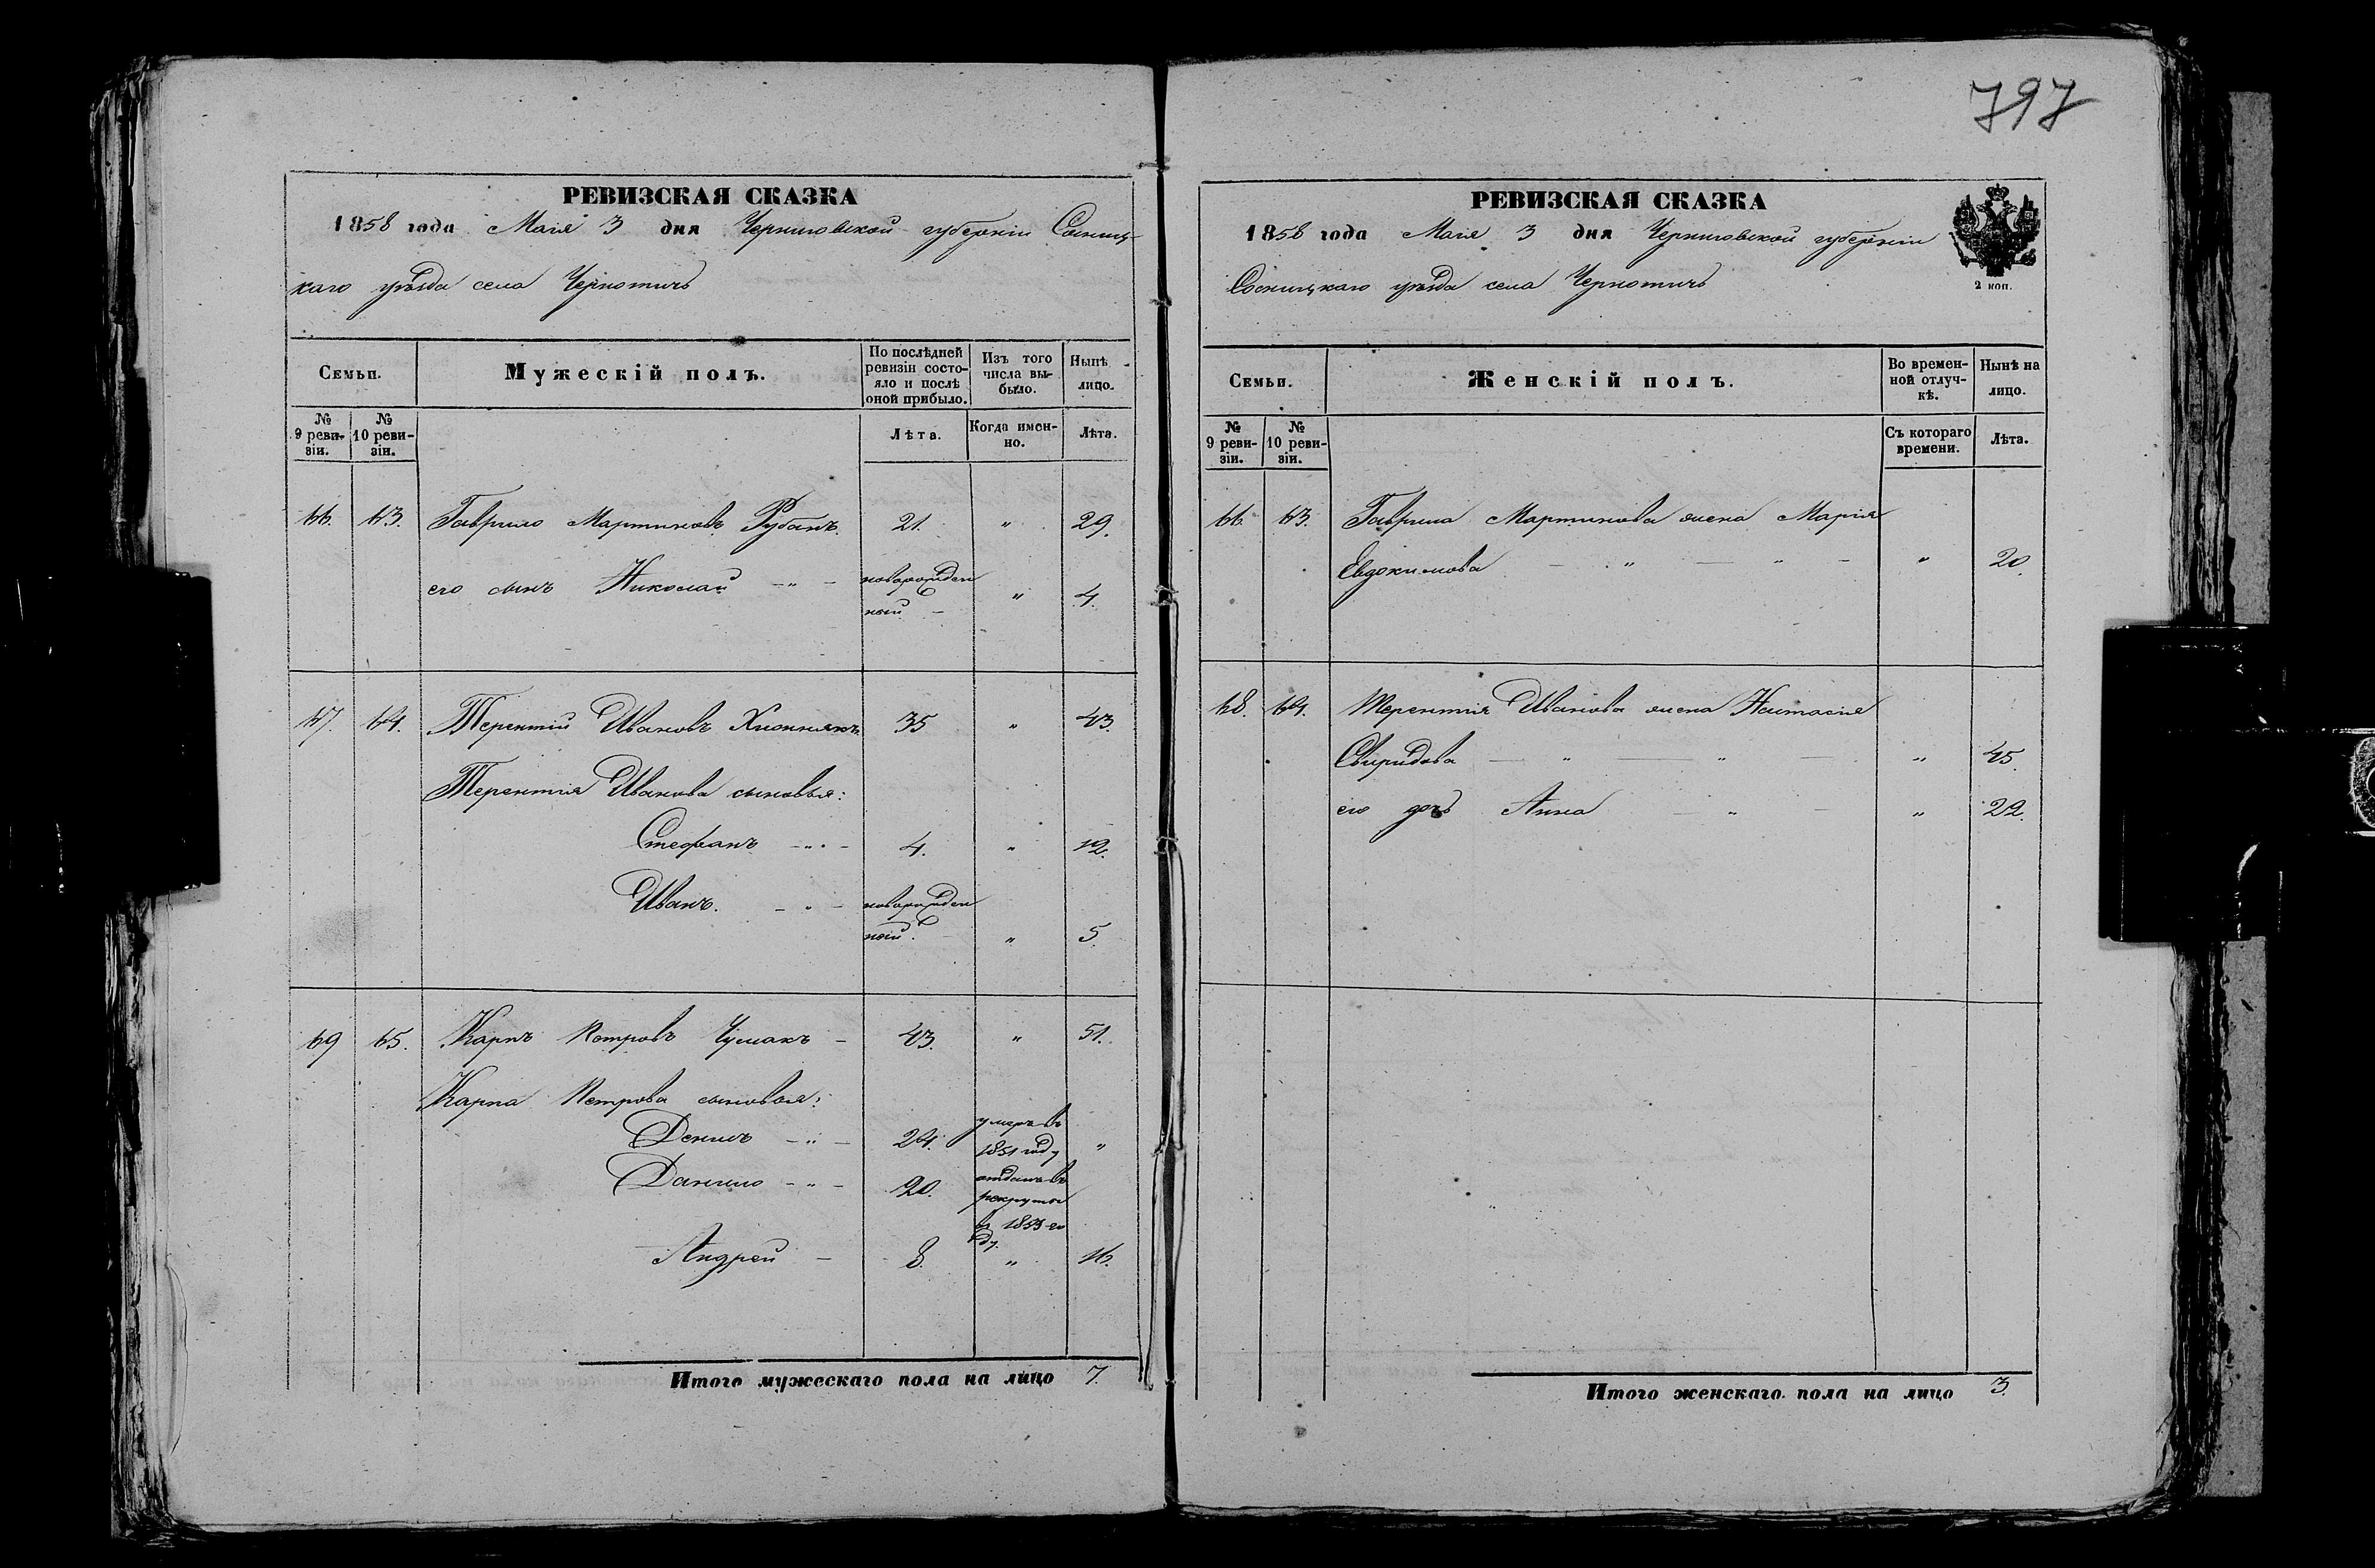 797
РЕВИЗСКАЯ СКАЗКА
1858 года Маія 3 дня Черниговской губерніи Сосниц-
каго уѣзда села Чернотичь
Семьи.
Мужескій полъ.
По послѣдней ревизіи состо-
яло и послѣ оной прибыло.
Изъ того числа вы-
было.
Нынѣ лицо.
№ 9 реви-
зіи.
№ 10 реви-
зіи.
Лѣта.
Когда имен-
но.
Лѣта.
66. 63. Гаврило Мартиновъ Рубанъ. 21. " 29.
его сынъ Николай - " - новорожден
ный - " 4.
67. 64. Терентій Ивановъ 35 " 43.
Терентія Иванова сыновья:
Стефанъ - " - 4. " 12.
Иванъ. - " - новорожден
ный. " 5.
69 65. Карпъ Петровъ Чумакъ - 43. " 51.
Карпа Петрова сыновья:
Денисъ - " - 24. умеръ въ
1851 году "
Данило - " - 20. отданъ въ
рекруты
въ 1853 го
ду.
Андрей - 8. " 16.
Итого мужескаго пола на лицо 7.
РЕВИЗСКАЯ СКАЗКА
1858 года Маія 3 дня Черниговской губерніи
Сосницкаго уѣзда села Чернотичь
2 коп.
Семьи.
Женскій полъ.
Во времен-
ной отлуч-
кѣ.
Нынѣ на лицо.
№ 9 реви-
зіи.
№ 10 реви-
зіи.
Съ котораго времени.
Лѣта.
66. 63. Гаврила Мартинова жена Марія
Евдокимова - " - " - " 20.
68. 64. Терентія Иванова жена Настасія
Свиридова - " - " - " 45.
его дочь Анна - " - " 22.
Итого женскаго пола на лицо 3.